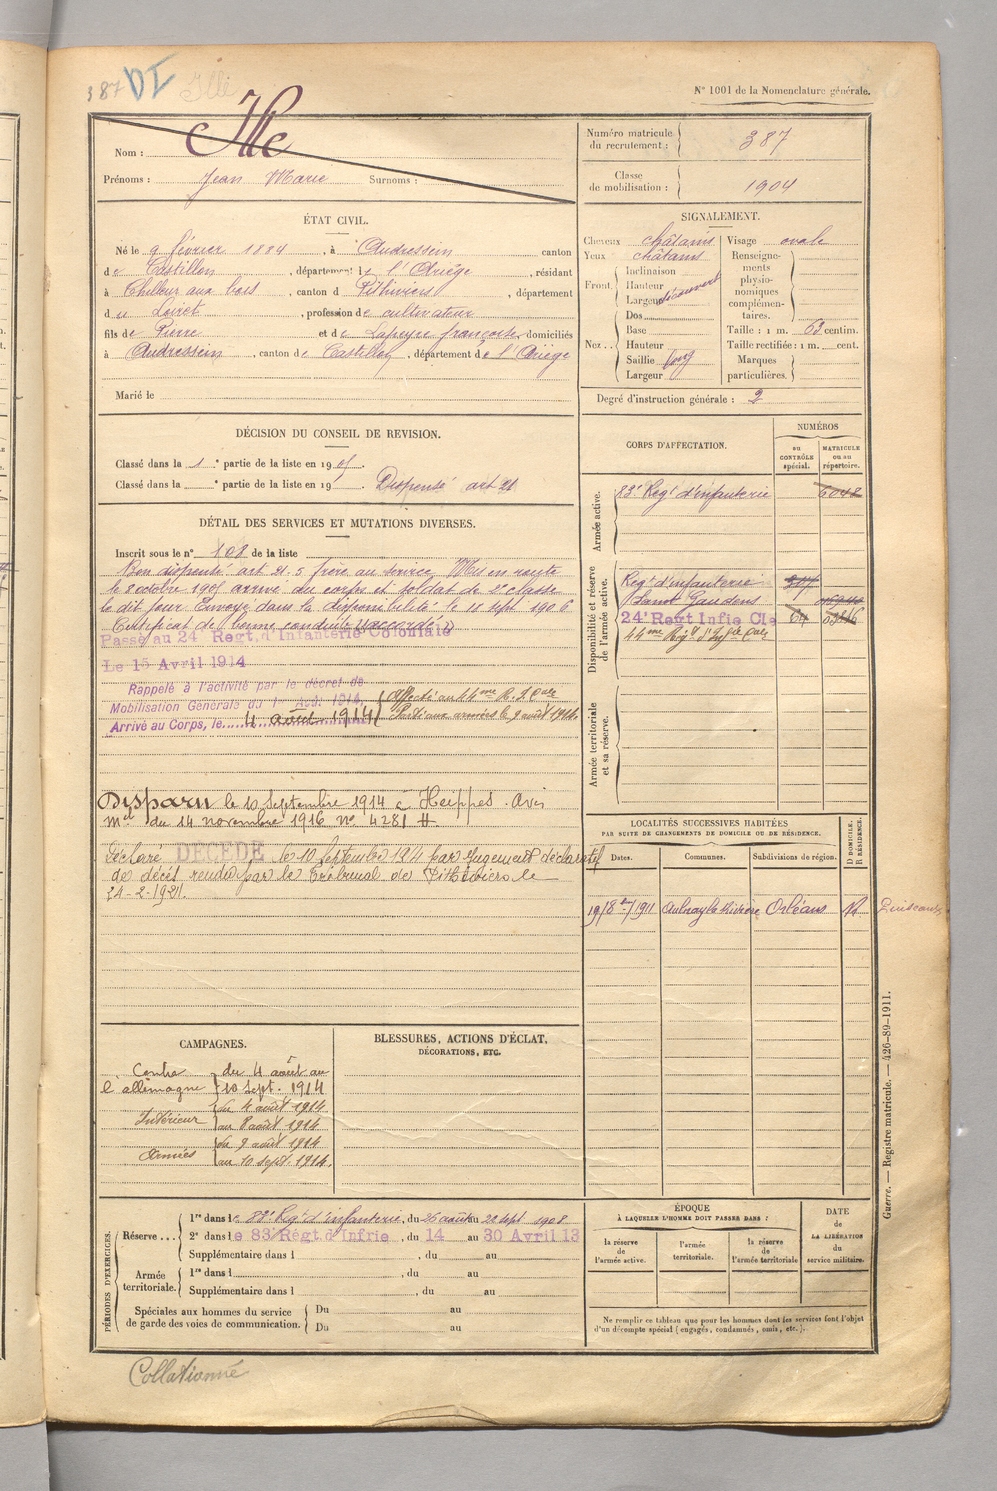 387 DI Ille
N° 1001 de la Nomenclature générale.
Nom : Ille
Prénoms : Jean Marie Surnoms :
Numéro matricule du recrutement : 387
Classe de mobilisation : 1904
ÉTAT CIVIL.
Né le 9 février 1884, à Audressein canton
de Castillon, département de l'Ariège, résidant
à Chilleur aux bois, canton d Pithiviers, département
du Loiret, profession de cultivateur
fils de Pierre et de Lapeyre françoise, domiciliés
à Audressein, canton de Castillon, département de l'Ariège
Marié le
SIGNALEMENT.
Cheveux châtains
Yeux châtains
Front. Inclinaison
Hauteur
Largeur découvert
Nez.. Dos
Base
Hauteur
Saillie long
Largeur
Visage ovale
Renseignements physionomiques complémentaires.
Taille : 1 m. 63 centim.
Taille rectifiée : 1 m. cent.
Marques particulières.
Degré d'instruction générale : 2
DÉCISION DU CONSEIL DE REVISION.
Classé dans la 1 e partie de la liste en 1905.
Classé dans la e partie de la liste en 19 . Dispensé art 21
DÉTAIL DES SERVICES ET MUTATIONS DIVERSES.
Inscrit sous le n° 108 de la liste
Bon dispensé art 21.5 frère au service Mis en route
le 8 octobre 1905 arrivé au corps et soldat de 2e classe
le dit jour Envoyé dans la disponibilité le 18 sept 1906
Certificat de bonne conduite "accordé"
Passé au 24e Regt. d'Infanterie Coloniale
Le 15 Avril 1914
Rappelé à l'activité par le décret de
Mobilisation Générale du 1er Août 1914,
Arrivé au Corps, le 4 août 1914
Affecté au 44me R. I. Cale
Parti aux armées le 9 août 1914.
Disparu le 10 Septembre 1914 à Heippes. Avis
mel du 14 novembre 1916 n° 4281 H.
Déclaré DÉCÉDÉ le 10 Septembre 1914 par Jugement déclaratif
de décès rendu par le Tribunal de Pithiviers le
24-2-1921.
CORPS D'AFFECTATION.
NUMÉROS
au CONTRÔLE spécial.
MATRICULE ou au répertoire.
Armée active.
83e Regt d'infanterie 6048
Disponibilité et réserve de l'armée active.
Regt d'infanterie
Saint Gaudens
24e Regt Infie Cle 64
44me Regt d'Infie Cale
Armée territoriale et sa réserve.
LOCALITÉS SUCCESSIVES HABITÉES
PAR SUITE DE CHANGEMENTS DE DOMICILE OU DE RÉSIDENCE.
Dates. Communes. Subdivisions de région. D DOMICILE. R RÉSIDENCE.
19/8bre/1911 Aulnay la Rivière Orléans R
CAMPAGNES.
Contre l'allemagne du 4 août au 10 Sept. 1914
Intérieur du 4 août 1914 au 8 août 1914
Armées du 9 août 1914 au 10 sept. 1914.
BLESSURES, ACTIONS D'ÉCLAT,
DÉCORATIONS, ETC.
PÉRIODES D'EXERCICES.
Réserve ... 1re dans le 83e Regt d'infanterie, du 26 août au 22 sept 1908
2e dans le 83 Régt. d'Infrie, du 14 au 30 Avril 13
Supplémentaire dans l , du au
Armée territoriale. 1re dans l , du au
Supplémentaire dans l , du au
Spéciales aux hommes du service de garde des voies de communication. Du au
Du au
ÉPOQUE
À LAQUELLE L'HOMME DOIT PASSER DANS :
la réserve de l'armée active.
l'armée territoriale.
la réserve de l'armée territoriale
DATE de LA LIBÉRATION du service militaire.
Ne remplir ce tableau que pour les hommes dont les services font l'objet
d'un décompte spécial (engagés, condamnés, omis, etc.).
Guerre. — Registre matricule. — 426-89-1911.
Collationné